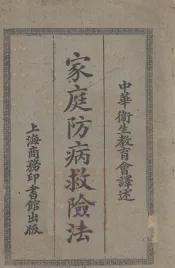 中華衛生教育會譯述
家庭防病救險法
上海商務印書館出版